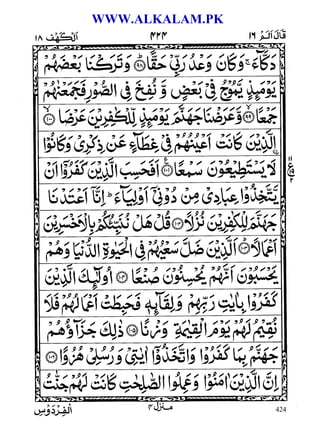 WWW.ALKALAM.PK
قَالَ اَلَمْ ١٦ ٤٢٤ اَلْكَهْف ١٨
دَكَّآءَ ۚ وَكَانَ وَعْدُ رَبِّىْ حَقًّا ﴿٩٨﴾ وَتَرَكْنَا بَعْضَهُمْ
يَوْمَئِذٍ يَّمُوْجُ فِىْ بَعْضٍ وَّنُفِخَ فِى الصُّوْرِ فَجَمَعْنٰهُمْ
جَمْعًا ﴿٩٩﴾ وَّعَرَضْنَا جَهَنَّمَ يَوْمَئِذٍ لِّلْكٰفِرِيْنَ عَرْضَا ﴿١٠٠﴾
الَّذِيْنَ كَانَتْ اَعْيُنُهُمْ فِىْ غِطَآءٍ عَنْ ذِكْرِىْ وَكَانُوْا
لَا يَسْتَطِيْعُوْنَ سَمْعًا ﴿١٠١﴾ اَفَحَسِبَ الَّذِيْنَ كَفَرُوْٓا اَنْ
يَّتَّخِذُوْا عِبَادِىْ مِنْ دُوْنِىْٓ اَوْلِيَآءَ ؕ اِنَّآ اَعْتَدْنَا
جَهَنَّمَ لِلْكٰفِرِيْنَ نُزُلًا ﴿١٠٢﴾ قُلْ هَلْ نُنَبِّئُكُمْ بِالْاَخْسَرِيْنَ
اَعْمَالًا ﴿١٠٣﴾ اَلَّذِيْنَ ضَلَّ سَعْيُهُمْ فِى الْحَيٰوةِ الدُّنْيَا وَهُمْ
يَحْسَبُوْنَ اَنَّهُمْ يُحْسِنُوْنَ صُنْعًا ﴿١٠٤﴾ اُولٰٓئِكَ الَّذِيْنَ
كَفَرُوْا بِاٰيٰتِ رَبِّهِمْ وَلِقَآئِهٖ فَحَبِطَتْ اَعْمَالُهُمْ فَلَا
نُقِيْمُ لَهُمْ يَوْمَ الْقِيٰمَةِ وَزْنًا ﴿١٠٥﴾ ذٰلِكَ جَزَآؤُهُمْ
جَهَنَّمُ بِمَا كَفَرُوْا وَاتَّخَذُوْٓا اٰيٰتِىْ وَرُسُلِىْ هُزُوًا ﴿١٠٦﴾
اِنَّ الَّذِيْنَ اٰمَنُوْا وَعَمِلُوا الصّٰلِحٰتِ كَانَتْ لَهُمْ جَنّٰتُ
الْفِرْدَوْسِ منزل ٤ 424